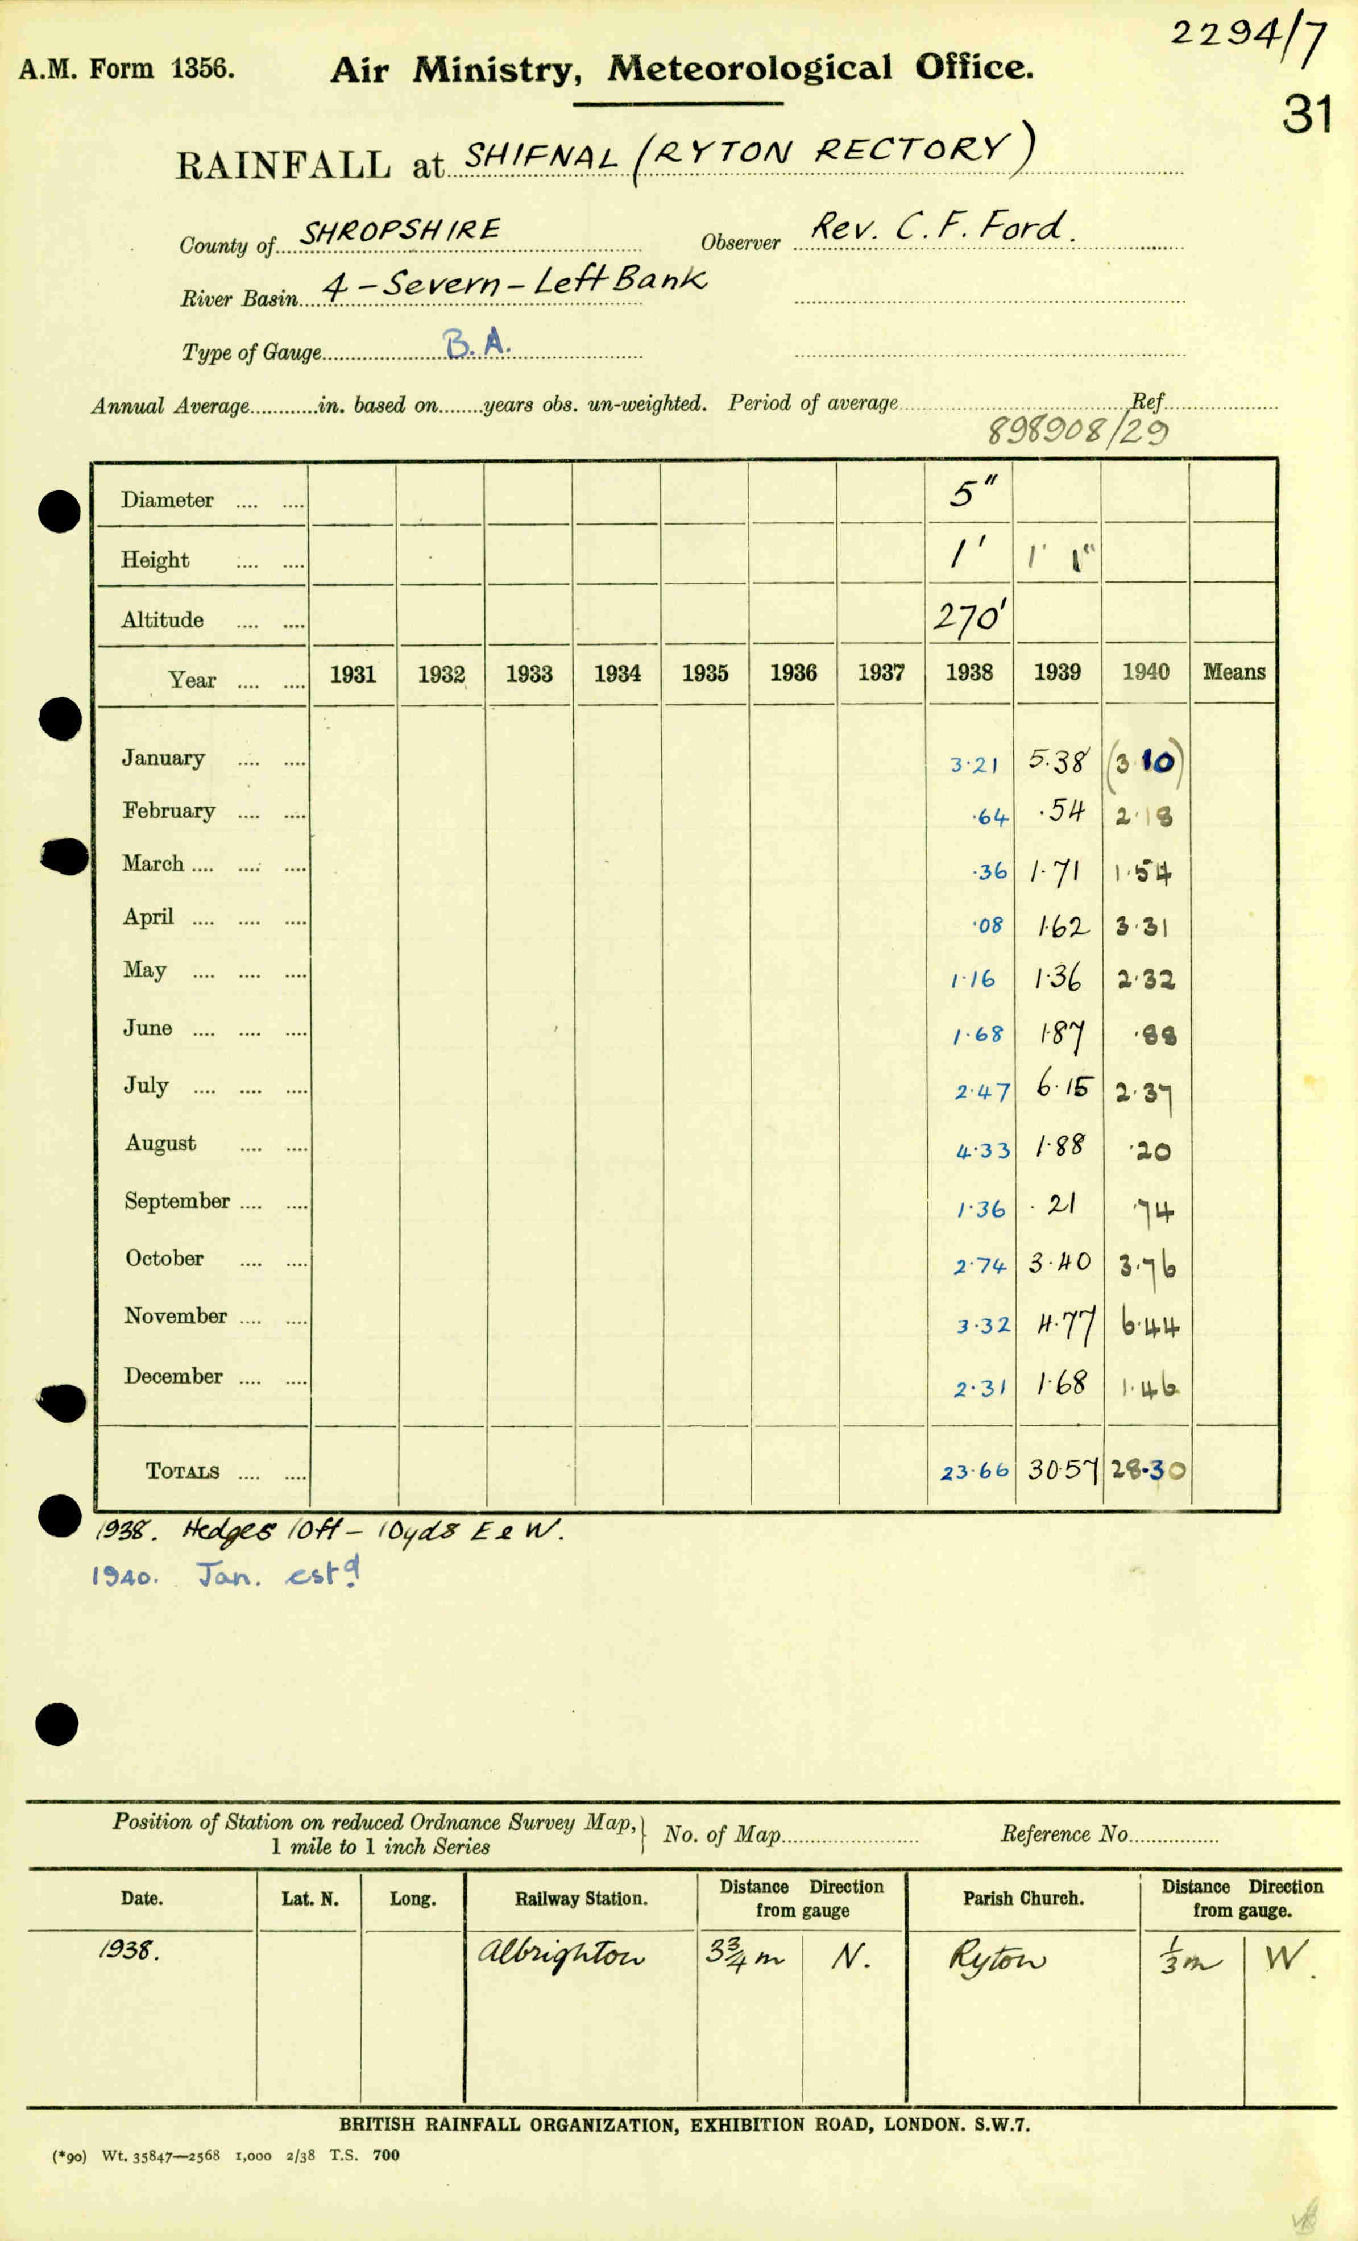 2294/7
A.M. Form 1356. Air Ministry, Meteorological Office.
31
RAINFALL at SHIFNAL (RYTON RECTORY)
County of SHROPSHIRE Observer Rev. C. F. Ford.
River Basin 4 - Severn - Left Bank
Type of Gauge B. A.
Annual Average............in. based on........years obs. un-weighted. Period of average Ref
898908/29
Diameter .... .... 5"
Height .... .... 1' 1' 1"
Altitude .... .... 270'
Year .... .... 1931 1932 1933 1934 1935 1936 1937 1938 1939 1940 Means
January .... .... 3.21 5.38 (3.10)
February .... .... .64 .54 2.18
March .... .... .... .36 1.71 1.54
April .... .... .... .08 1.62 3.31
May .... .... .... 1.16 1.36 2.32
June .... .... .... 1.68 1.87 .88
July .... .... .... 2.47 6.15 2.37
August .... .... 4.33 1.88 .20
September .... .... 1.36 .21 .74
October .... .... 2.74 3.40 3.76
November .... .... 3.32 4.77 6.44
December .... .... 2.31 1.68 1.46
TOTALS .... .... 23.66 30.57 28.30
1938. Hedges 10ft - 10yds E & W.
1940. Jan. estd
Position of Station on reduced Ordnance Survey Map, } No. of Map Reference No.
1 mile to 1 inch Series
Date. Lat. N. Long. Railway Station. Distance Direction from gauge Parish Church. Distance Direction from gauge.
1938. Albrighton 3¾ m N. Ryton ⅓ m W.
BRITISH RAINFALL ORGANIZATION, EXHIBITION ROAD, LONDON. S.W.7.
(*90) Wt. 35847—2568 1,000 2/38 T.S. 700